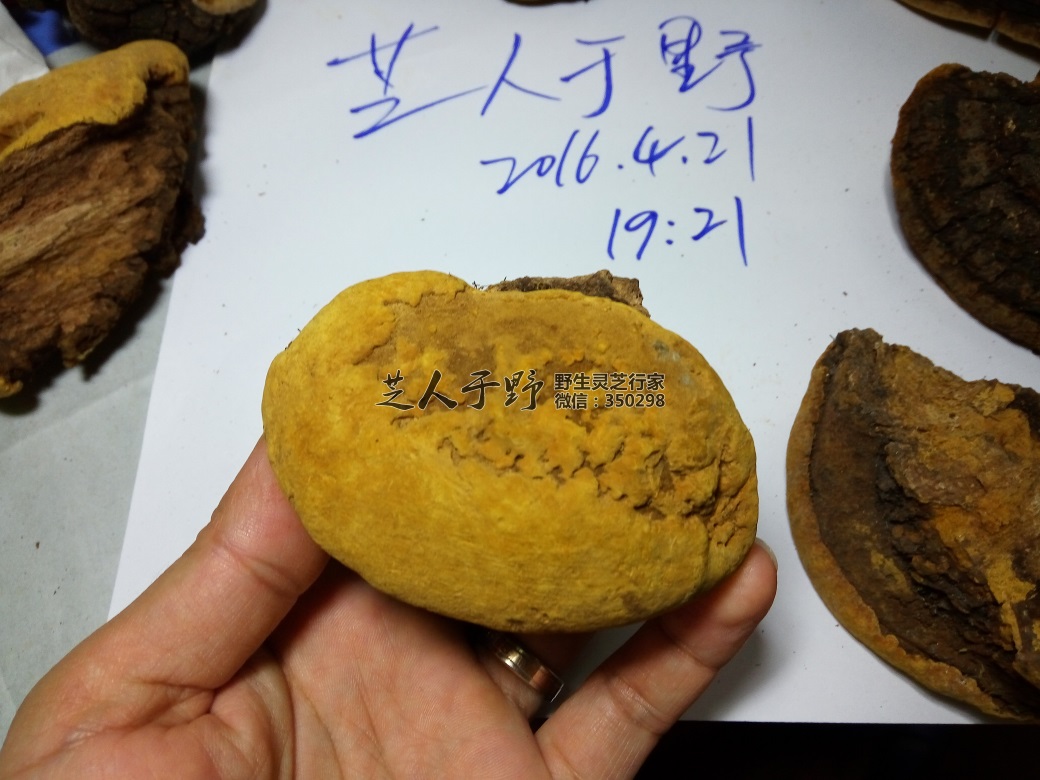 芝人于野
2016.4.21
19:21
芝人于野
野生灵芝行家
微信：350298